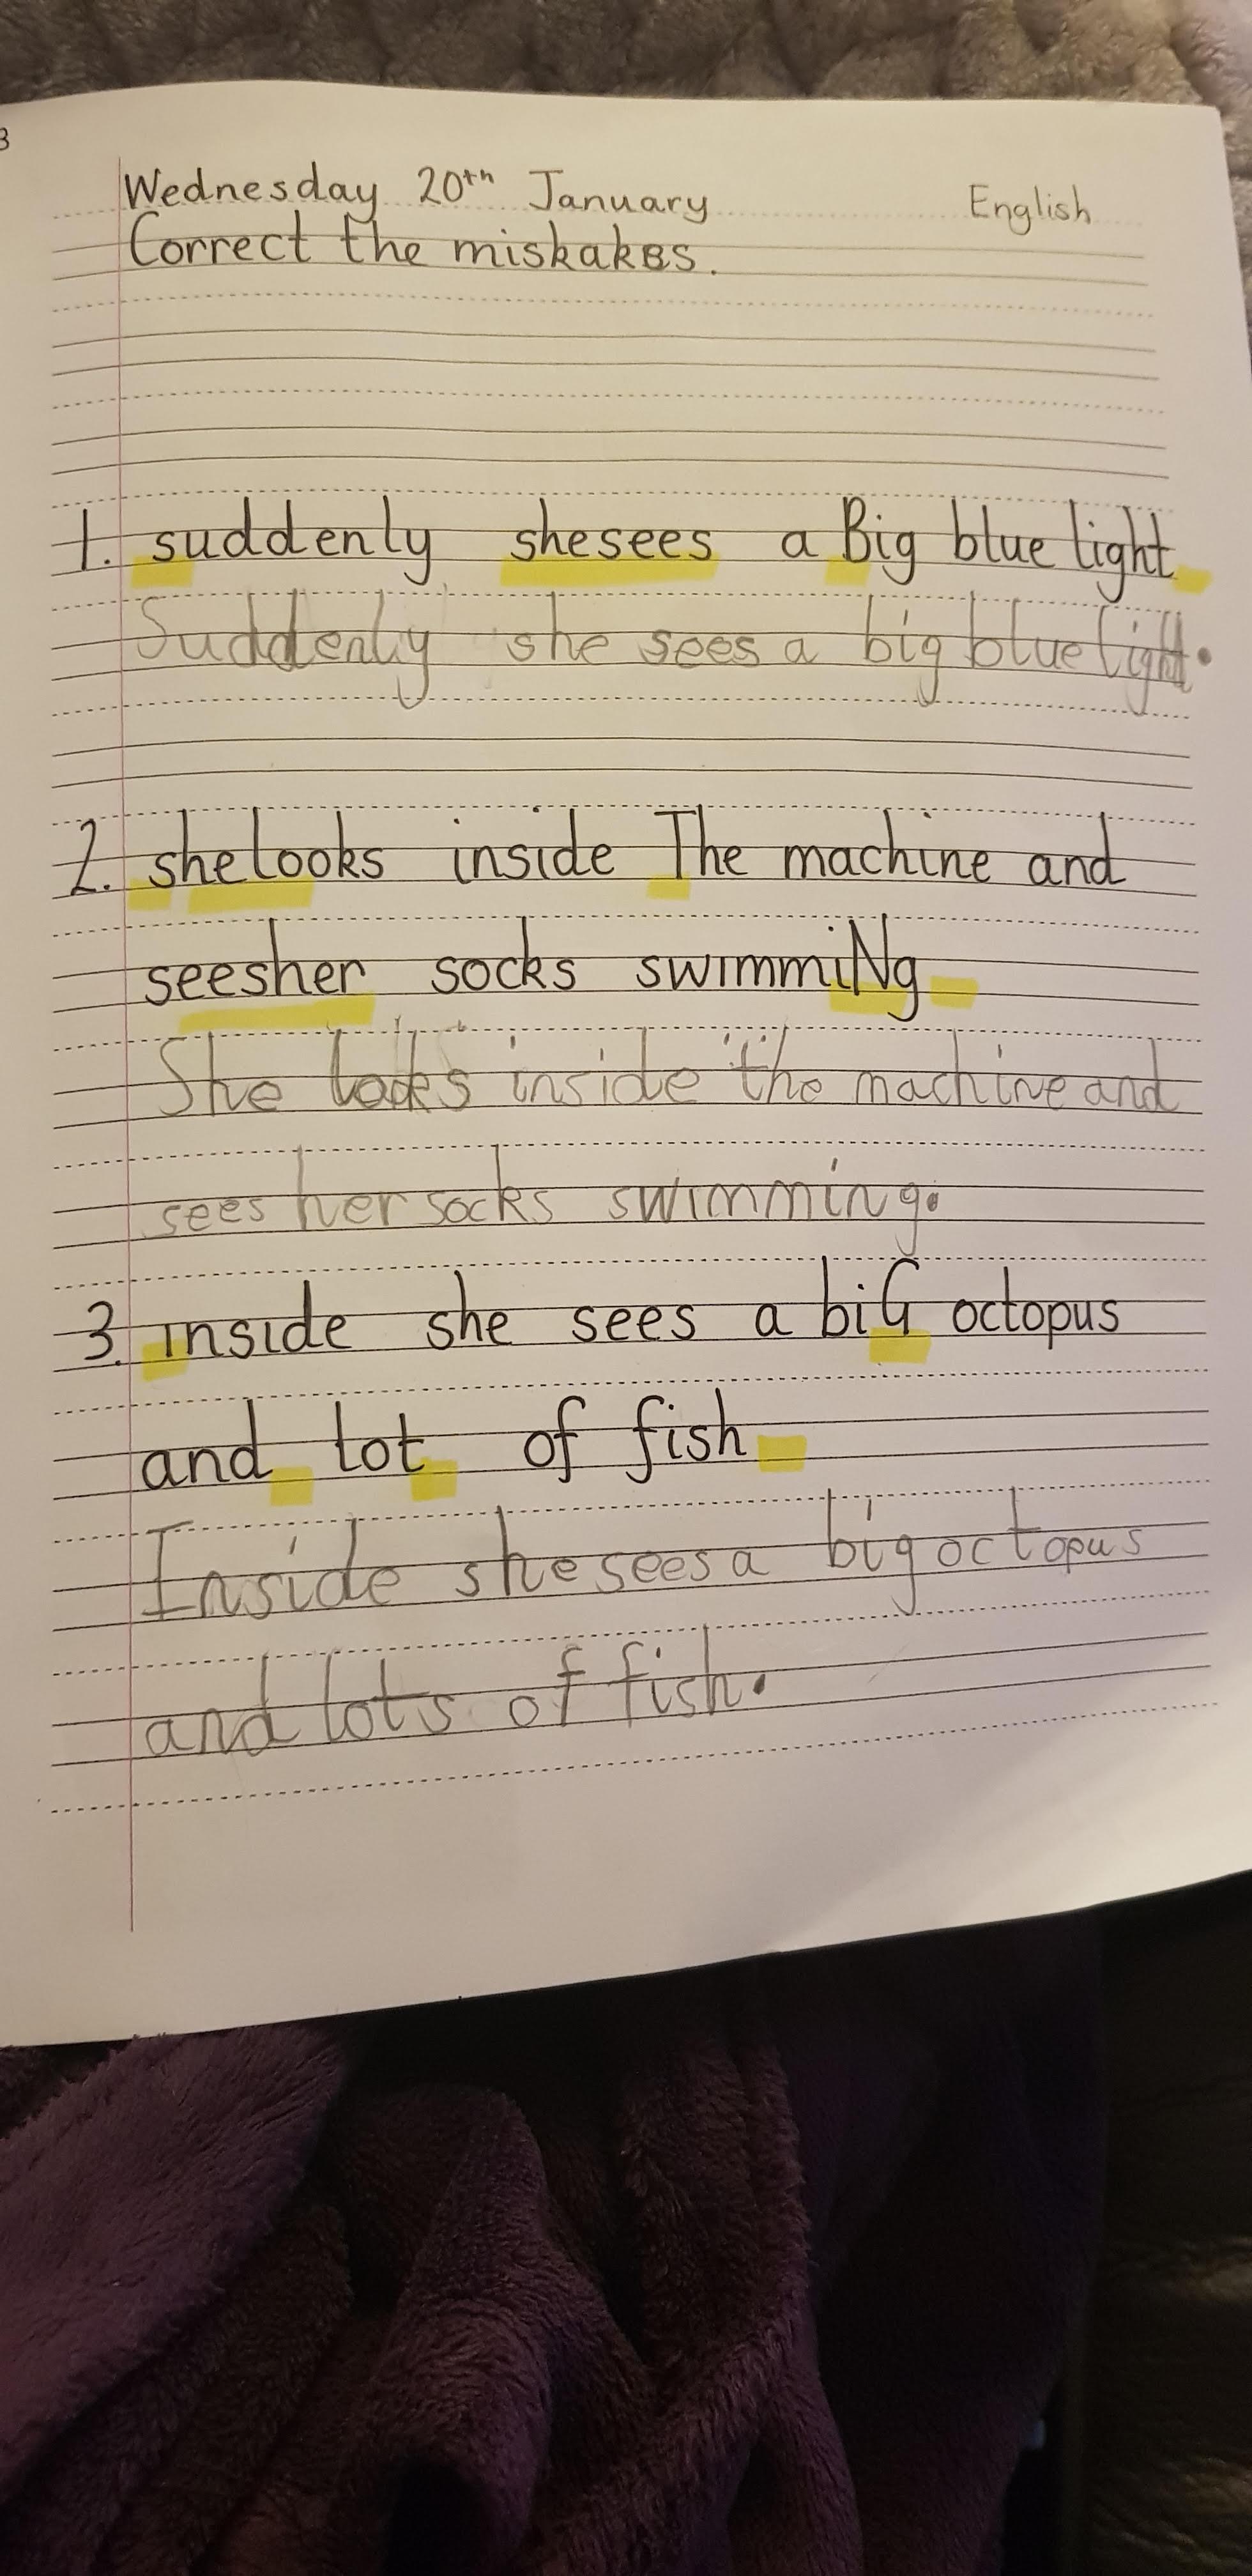 3
Wednesday 20th January English
Correct the miskakes.
1. suddenly shesees a Big blue light
Suddenly she sees a big blue light.
2. shelooks inside The machine and
seesher socks swimmiNg
She looks inside the machine and
sees her socks swimming.
3. inside she sees a biG octopus
and lot of fish
Inside she sees a big octopus
and lots of fish.